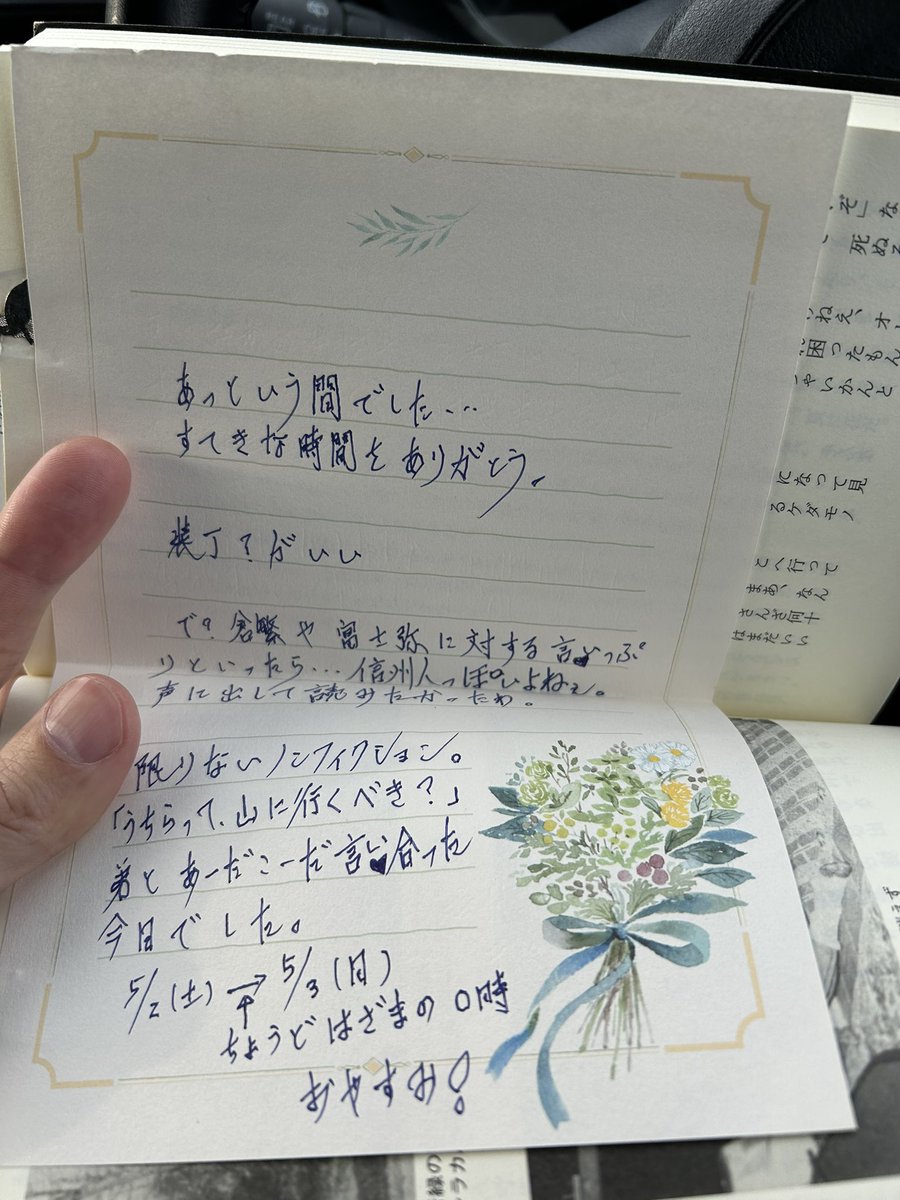 あっという間でした…
すてきな時間をありがとう。
装丁？がいい
で？倉繁や富士弥に対する言いっぷ
りといったら…信州人っぽいよねぇ。
声に出して読みたかったわ。
限りないノンフィクション。
「うちらって、山に行くべき？」
弟とあーだこーだ言い合った
今日でした。
5/2(土)→5/3(日)
↑
ちょうどはざまの0時
おやすみ！
ぞ」な
死ぬ
ねえ、オ
困ったもん
ゃいかんと
になって見
るケダモノ
とへ行って
まあ、なん
さんざ何十
はまだいい
緑の
ラカ